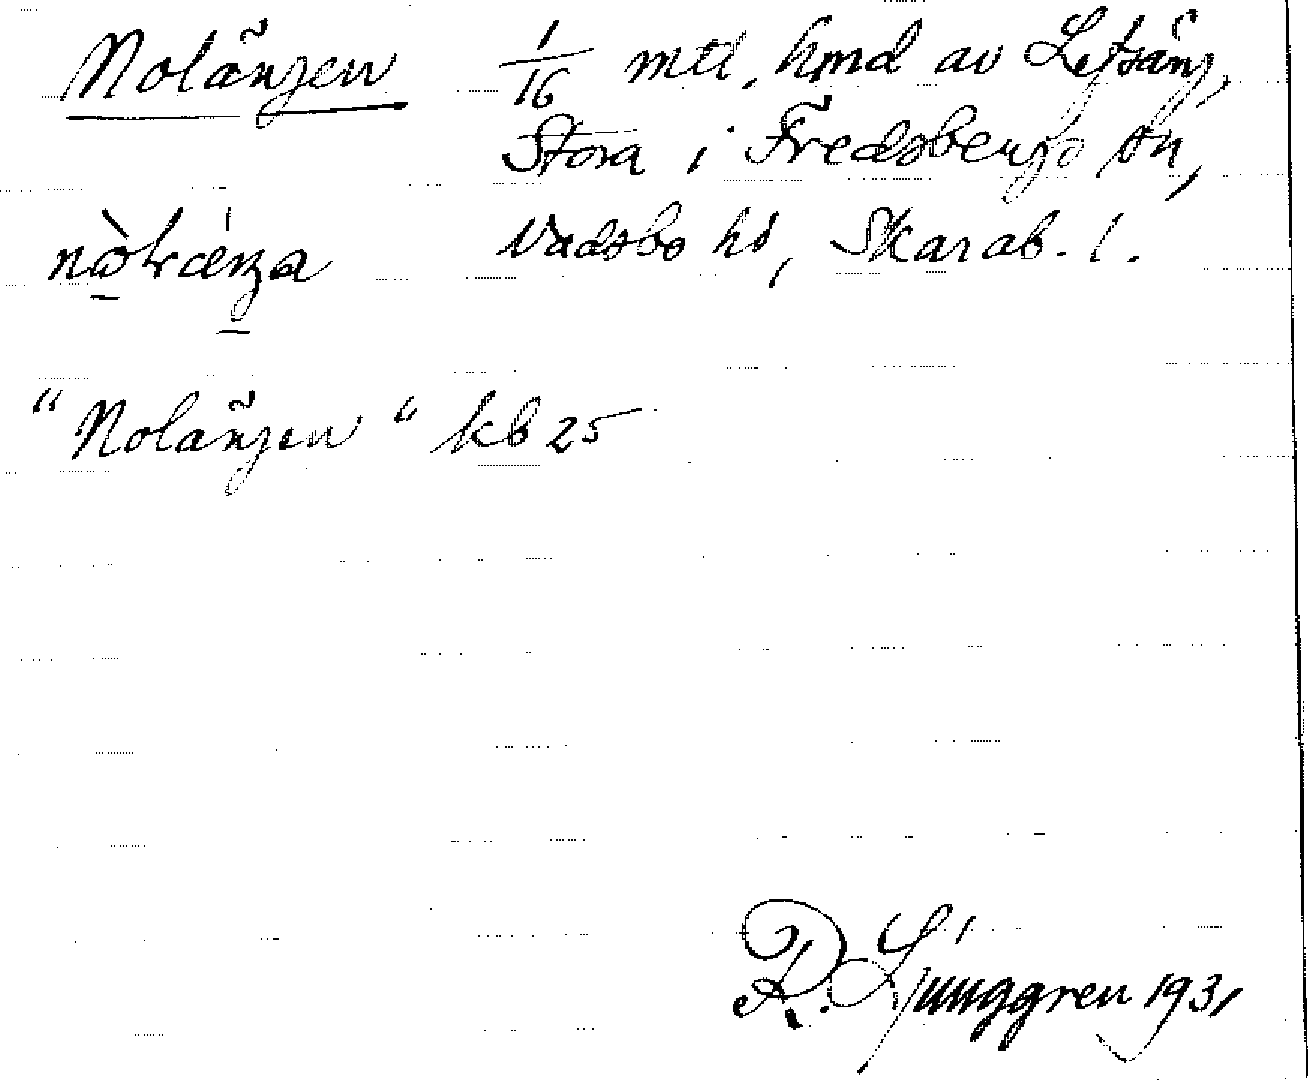 Nolängen 1/16 mtl, hmd av Lefsäng,
Stora i Fredsbergs sn,
Vadsbo hd, Skarab. l.
"Nolängen" kb 25
R. Ljunggren 1931